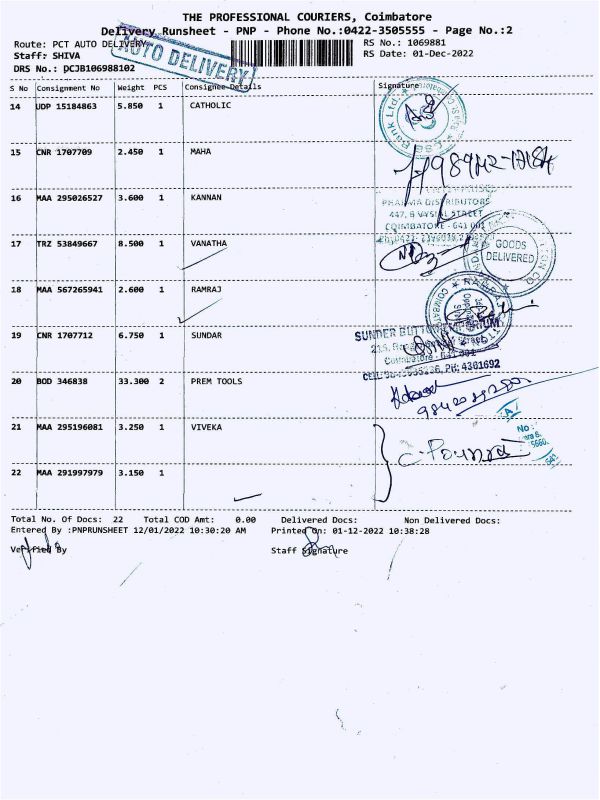 THE PROFESSIONAL COURIERS, Coimbatore
Delivery Runsheet - PNP - Phone No.:0422-3505555 - Page No.:2
Route: PCT AUTO DELIVERY
RS No.: 1069881
Staff: SHIVA
RS Date: 01-Dec-2022
DRS No.: DCJB106988102
AUTO DELIVERY
S No Consignment No Weight PCS Consignee Details Signature
14 UDP 15184863 5.850 1 CATHOLIC
CSB Bank Ltd.
15 CNR 1707709 2.450 1 MAHA
16 MAA 295026527 3.600 1 KANNAN
PHARMA DISTRIBUTORS
447, 6 VYSIAL STREET
COIMBATORE - 641 001
17 TRZ 53849667 8.500 1 VANATHA
GOODS
DELIVERED
18 MAA 567265941 2.600 1 RAMRAJ
19 CNR 1707712 6.750 1 SUNDAR
SUNDER BUTTON
Coimbatore - 641 001
PH: 4381692
20 BOD 346838 33.300 2 PREM TOOLS
21 MAA 295196081 3.250 1 VIVEKA
No:
22 MAA 291997979 3.150 1
Total No. Of Docs: 22 Total COD Amt: 0.00 Delivered Docs: Non Delivered Docs:
Entered By :PNPRUNSHEET 12/01/2022 10:30:20 AM Printed On: 01-12-2022 10:38:28
Verified By Staff Signature